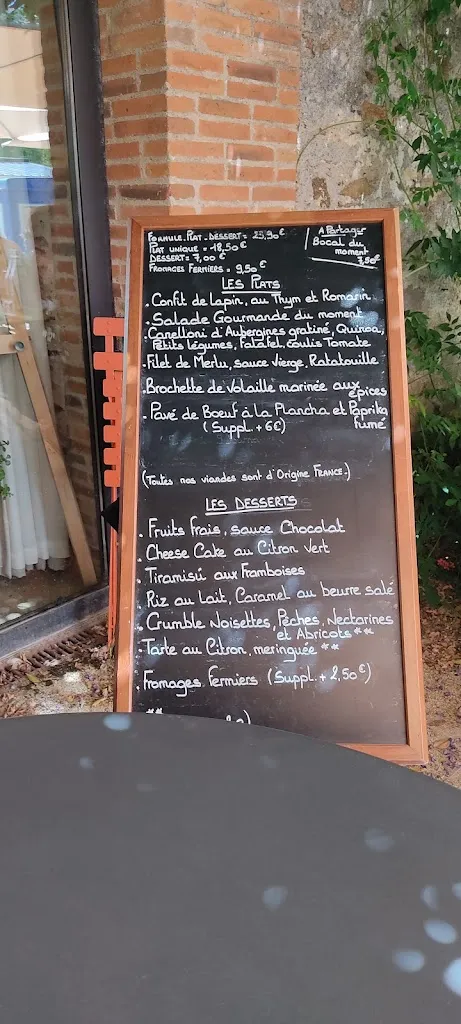 Formule Plat - Dessert = 23,90€
Plat unique = 18,50€
Dessert = 7,00€
Fromages Fermiers = 9,50€
A Partager
Bocal du
moment
7,50€
Les Plats
. Confit de Lapin, au Thym et Romarin
. Salade Gourmande du moment
. Canelloni d'Aubergines gratiné, Quinoa,
Petits légumes, Falafel, coulis Tomate
. Filet de Merlu, sauce Vierge, Ratatouille
. Brochette de Volaille marinée aux
épices
. Pavé de Boeuf à la Plancha et Paprika
fumé
(Suppl. + 6€)
(Toutes nos viandes sont d'Origine France.)
Les Desserts
. Fruits frais, sauce Chocolat
. Cheese Cake au Citron Vert
. Tiramisú aux Framboises
. Riz au Lait, Caramel au beurre salé
. Crumble Noisettes, Pêches, Nectarines
et Abricots **
. Tarte au Citron, meringuée **
. Fromages Fermiers (Suppl. + 2,50€)
**